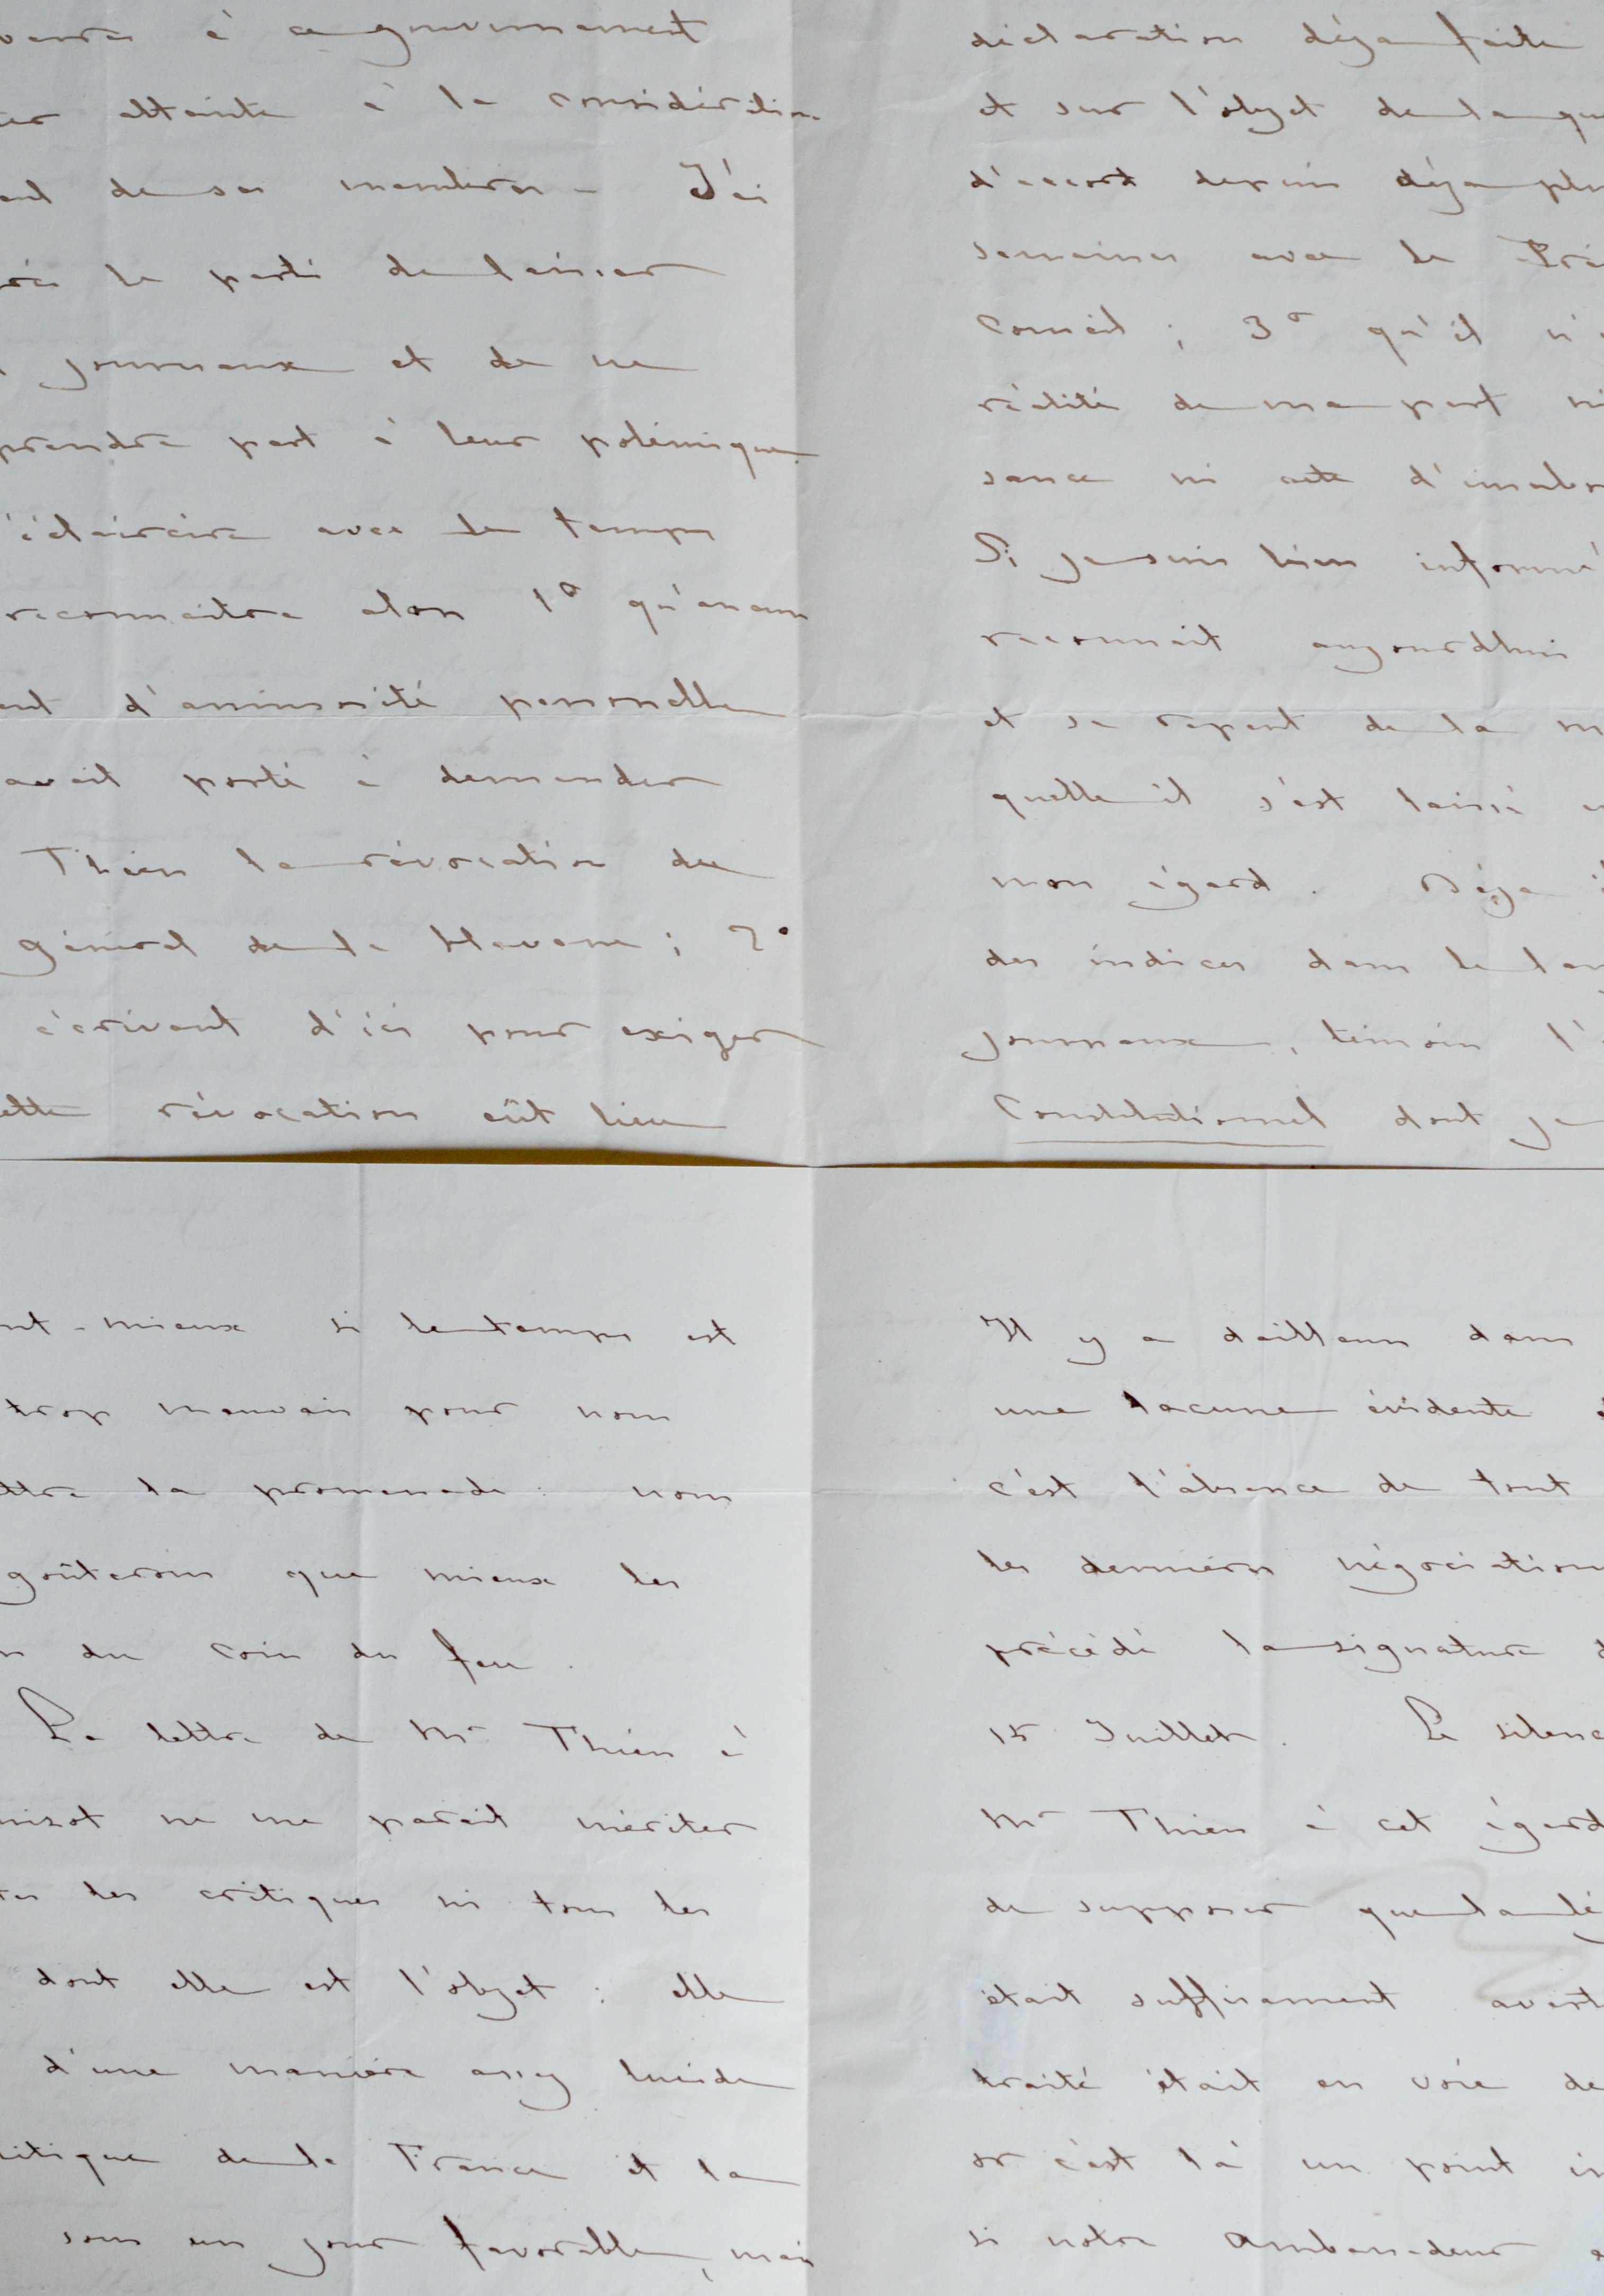 à ce gouvernement
atteinte à la considération
de ses membres - J'ai
le parti de laisser
journaux et de ne
prendre part à leur polémique
éclaircira avec le temps
reconnaitra alors 1° qu'aucun
d'animosité personnelle
avait porté à demander
Thiers la révocation du
général de la Havane ; 2°
écrivant d'ici pour exiger
révocation eût lieu
déclaration déja faite
et sur l'objet de laqu
d'accord depuis déja plu
semaines avec le Pré
Conseil ; 3° qu'il n'
réalité de ma part ni
sance ni acte d'insubo
Si je suis bien informé
reconnait aujourdhui
et se repent de la m
quelle il s'est laissé
mon égard. Déja
des indices dans le lan
journaux, témoin l'
Constitutionnel dont je
nt-mieux si le temps est
trop mauvais pour nous
la promenade : nous
goûterons que mieux les
du coin du feu.
La lettre de Mr Thiers à
uizot ne me parait mériter
les critiques ni tous les
dont elle est l'objet : elle
d'une manière assez lucide
litique de la France et la
sous un jour favorable, mais
Il y a dailleurs dans
une lacune évidente
c'est l'absence de tout
les dernières négociations
précédé la signature d
15 Juillet. Le silenc
Mr Thiers à cet égard
de supposer que la lé
était suffisament avert
traité était en voie de
or c'est là un point in
si notre Ambassadeur